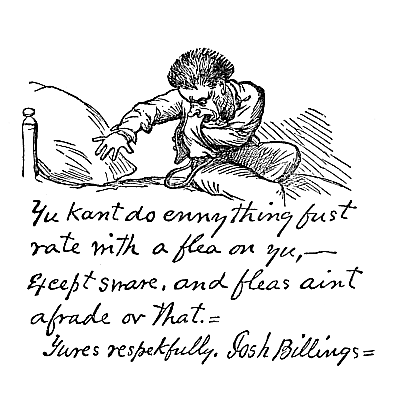 Yu kant do ennything fust
rate with a flea on yu,—
Except sware, and fleas aint
afrade ov that.=
Yures respekfully. Josh Billings=